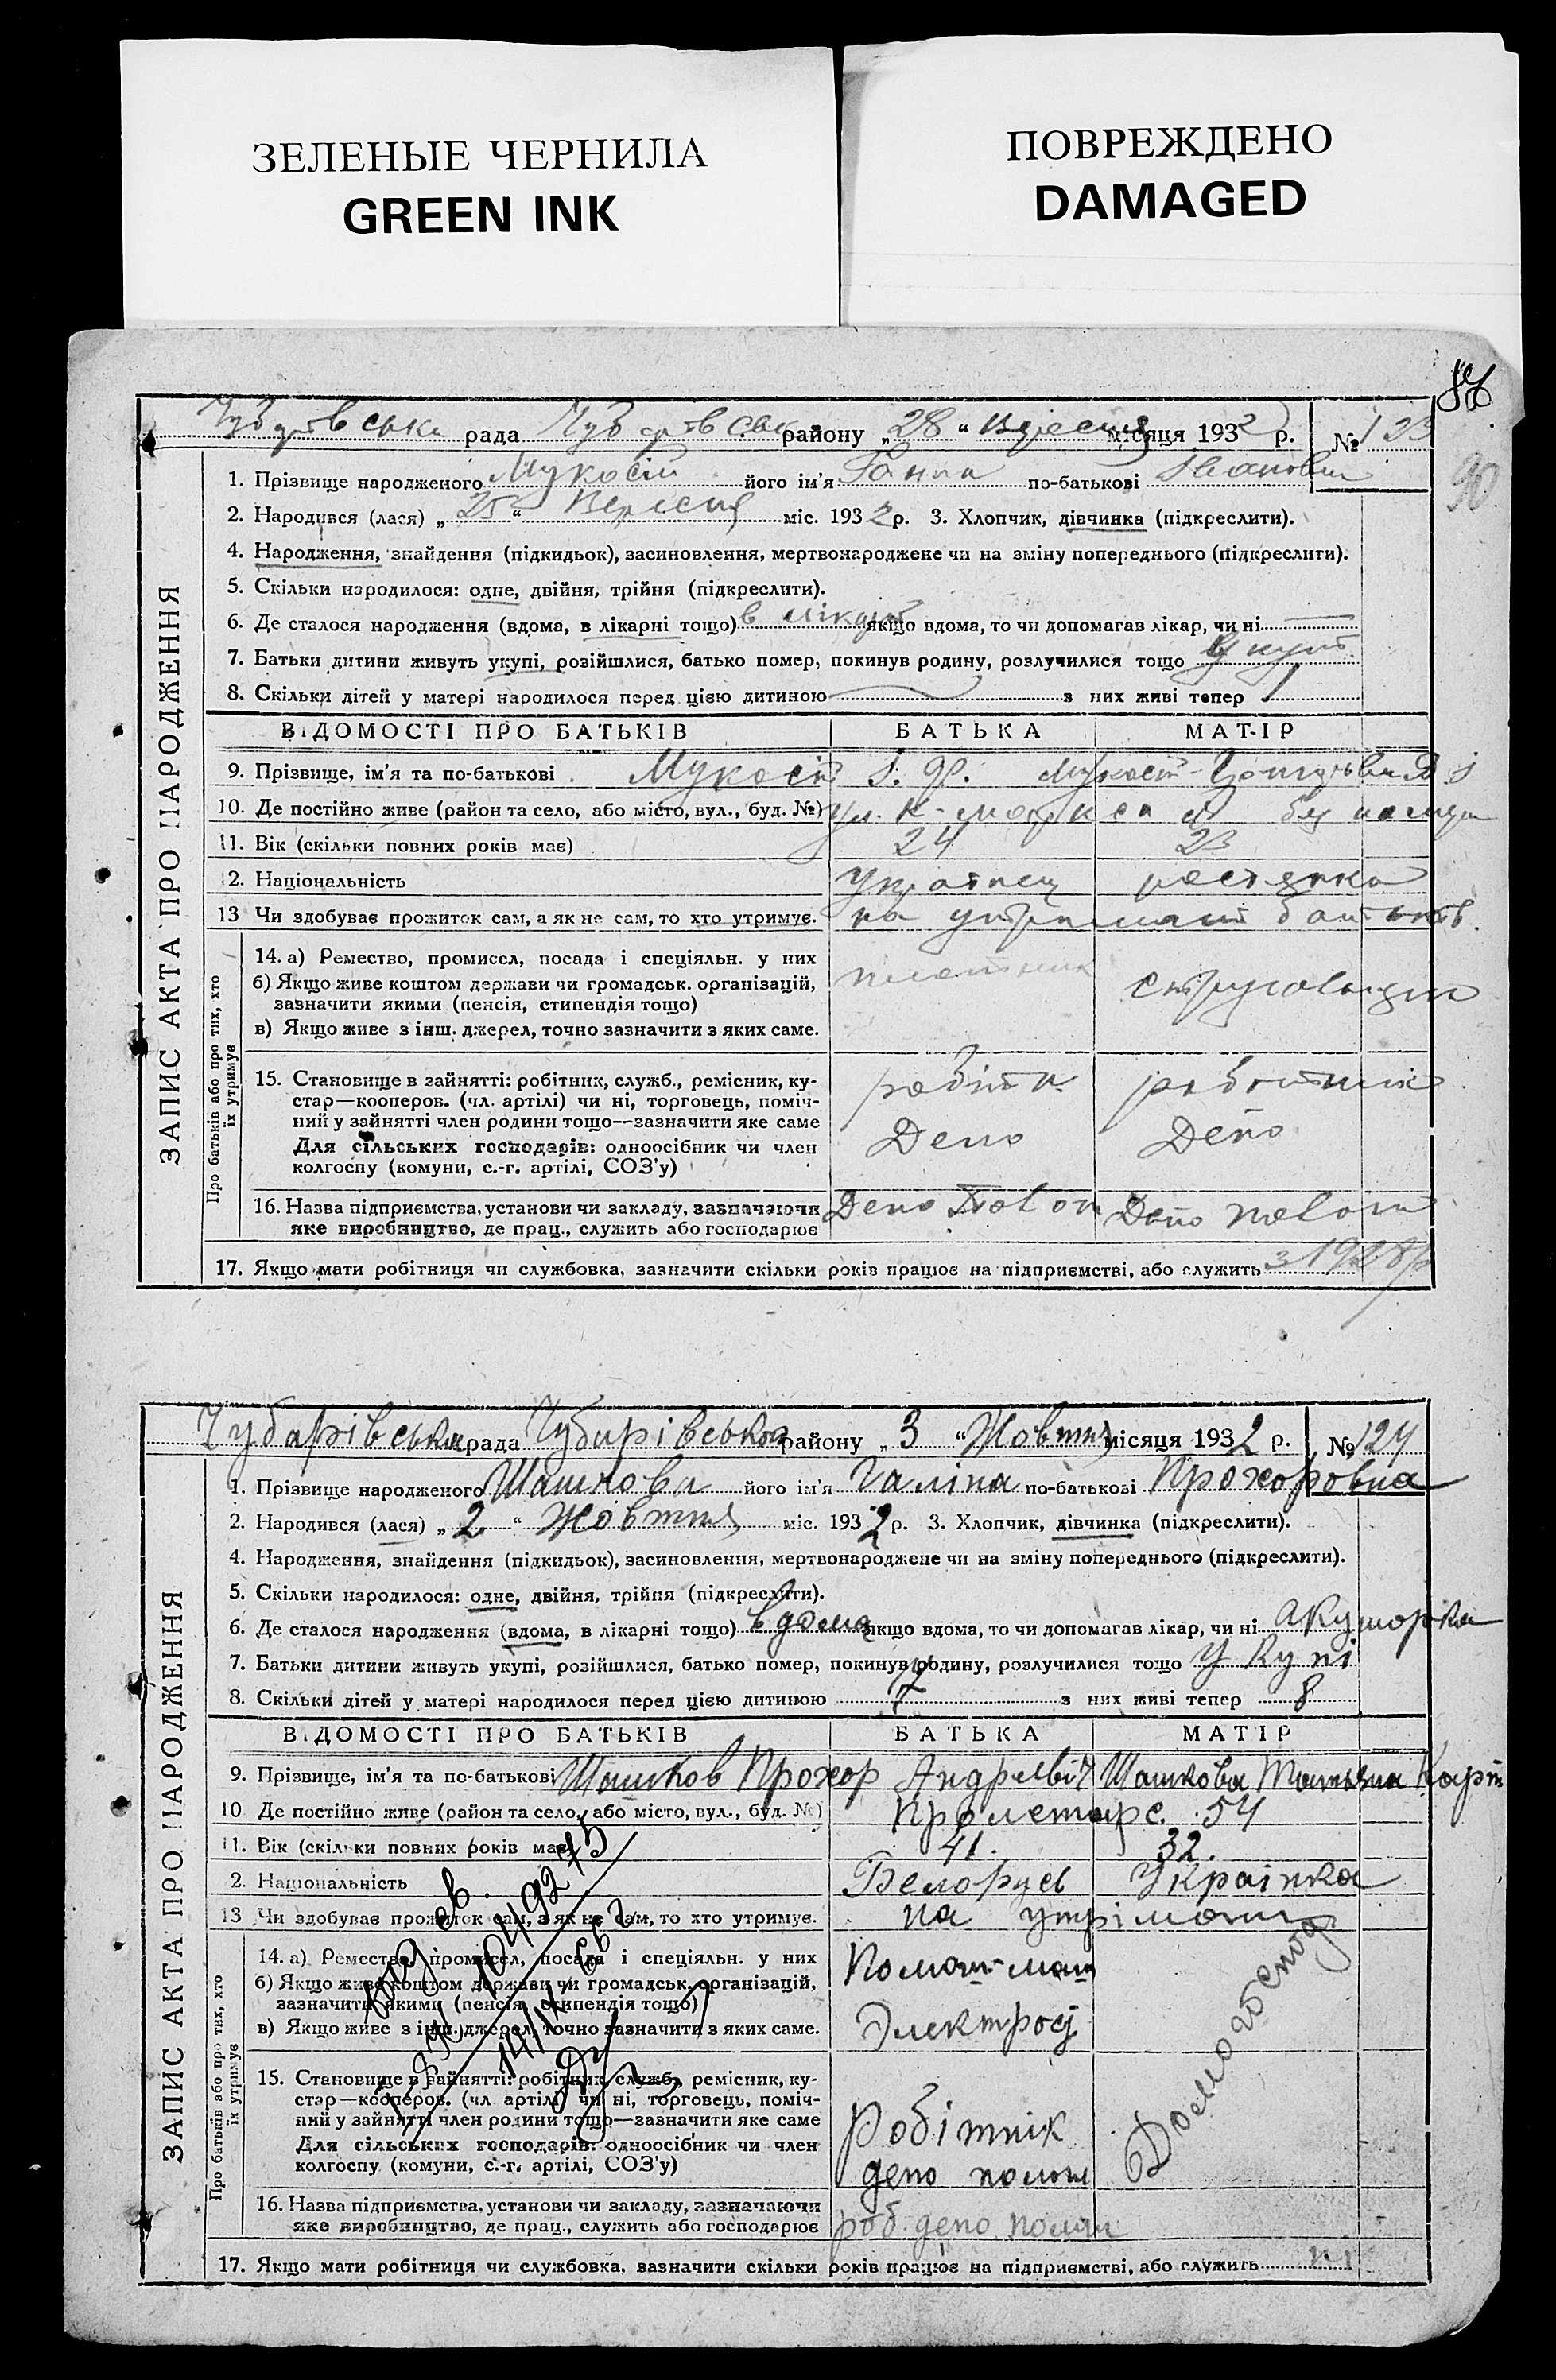 ЗЕЛЕНЫЕ ЧЕРНИЛА
GREEN INK
ПОВРЕЖДЕНО
DAMAGED
90
рада району „28“ Вересня місяця 1932 р. № 123
1. Прізвище народженого Мукосій його ім'я Ганна по-батькові Івановна
2. Народився (лася) „25“ Вересня міс. 1932 р. 3. Хлопчик, дівчинка (підкреслити).
4. Народження, знайдення (підкидьок), засиновлення, мертвонароджене чи на зміну попереднього (підкреслити).
5. Скільки народилося: одне, двійня, трійня (підкреслити).
6. Де сталося народження (вдома, в лікарні тощо) в якщо вдома, то чи допомагав лікар, чи ні —
7. Батьки дитини живуть укупі, розійшлися, батько помер, покинув родину, розлучилися тощо Укупі
8. Скільки дітей у матері народилося перед цією дитиною — з них живі тепер 1
ВІДОМОСТІ ПРО БАТЬКІВ БАТЬКА МАТІР
9. Прізвище, ім'я та по-батькові Мукосій І. Ф. Мукосій
10. Де постійно живе (район та село, або місто, вул., буд. №) ул. К-Маркса
11. Вік (скільки повних років має) 24 23
12. Національність Українец росіянка
13 Чи здобуває прожиток сам, а як не сам, то хто утримує. на утриманні батьків.
14. а) Ремество, промисел, посада і спеціяльн. у них
б) Якщо живе коштом держави чи громадськ. організацій,
зазначити якими (пенсія, стипендія тощо)
в) Якщо живе з інш. джерел, точно зазначити з яких саме.
плотник
15. Становище в зайнятті: робітник, служб., ремісник, ку-
стар—кооперов. (чл. артілі) чи ні, торговець, поміч-
ний у зайнятті член родини тощо—зазначити яке саме
Для сільських господарів: одноосібник чи член
колгоспу (комуни, с.-г. артілі, СОЗ'у)
робітн.
Депо Депо
16. Назва підприємства, установи чи закладу, зазначаючи Депо Депо
яке виробництво, де прац., служить або господарює
17. Якщо мати робітниця чи службовка, зазначити скільки років працює на підприємстві, або служить з 1928р
ЗАПИС АКТА ПРО НАРОДЖЕННЯ
Про батьків або про тих, хто
їх утримує
Чубарівська рада Чубарівського району „3“ Жовтня місяця 1932 р. № 124
1. Прізвище народженого Машкова його ім'я Галіна по-батькові Прохоровна
2. Народився (лася) „2“ Жовтня міс. 1932 р. 3. Хлопчик, дівчинка (підкреслити).
4. Народження, знайдення (підкидьок), засиновлення, мертвонароджене чи на зміну попереднього (підкреслити).
5. Скільки народилося: одне, двійня, трійня (підкреслити).
6. Де сталося народження (вдома, в лікарні тощо) вдома якщо вдома, то чи допомагав лікар, чи ні акушорка
7. Батьки дитини живуть укупі, розійшлися, батько помер, покинув родину, розлучилися тощо у купі
8. Скільки дітей у матері народилося перед цією дитиною 7 з них живі тепер 8
ВІДОМОСТІ ПРО БАТЬКІВ БАТЬКА МАТІР
9. Прізвище, ім'я та по-батькові Машков Прохор Андреевіч Машкова Татьяна Карп
10 Де постійно живе (район та село, або місто, вул., буд. №) Пролетарс. 54
11. Вік (скільки повних років має) 41. 32.
2. Національність Белорусь Українка
13 Чи здобуває прожиток сам, а як не сам, то хто утримує. на утріманні
14. а) Ремество, промисел, посада і спеціяльн. у них
б) Якщо живе коштом держави чи громадськ. організацій,
зазначити якими (пенсія, стипендія тощо)
в) Якщо живе з інш. джерел, точно зазначити з яких саме.
Помош-маш
Домогоспод
15. Становище в зайнятті: робітник, служб., ремісник, ку-
стар—кооперов. (чл артілі) чи ні, торговець, поміч-
ний у зайнятті член родини тощо—зазначити яке саме
Для сільських господарів: одноосібник чи член
колгоспу (комуни, с.-г. артілі, СОЗ'у)
Робітнік
депо
16. Назва підприємства, установи чи закладу, зазначаючи
яке виробництво, де прац., служить або господарює
роб. депо
17. Якщо мати робітниця чи службовка, зазначити скільки років працює на підприємстві, або служить ні
ЗАПИС АКТА ПРО НАРОДЖЕННЯ
Про батьків або про тих, хто
їх утримує